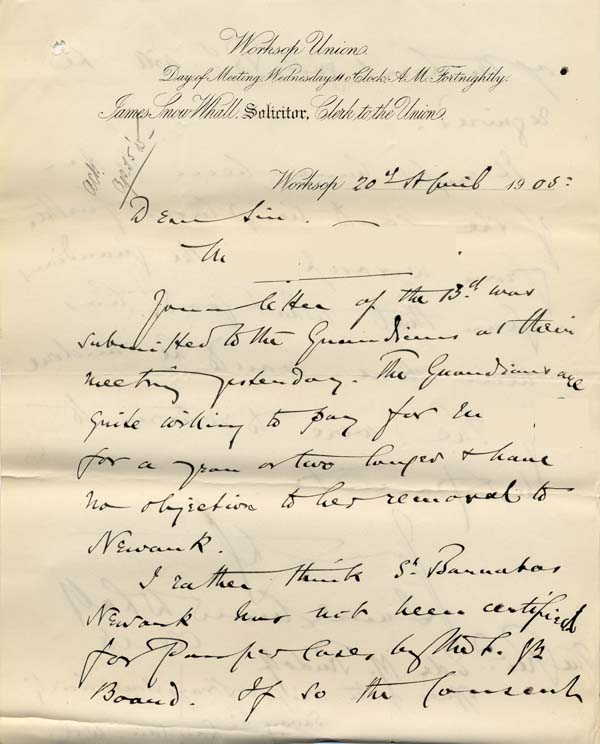 Worksop Union.
Day of Meeting: Wednesday 11 o'Clock A.M. Fortnightly.
James Snow Whall, Solicitor, Clerk to the Union.
ack.
Worksop 20th April 1905:
Dear Sir.
M
Your letter of the 13th was
submitted to the Guardians at their
meeting yesterday. The Guardians are
quite willing to pay for M
for a year or two longer & have
no objection to her removal to
Newark.
I rather think St Barnabas
Newark has not been certified
for Pauper Cases by the L. G.
Board. If so the Consent